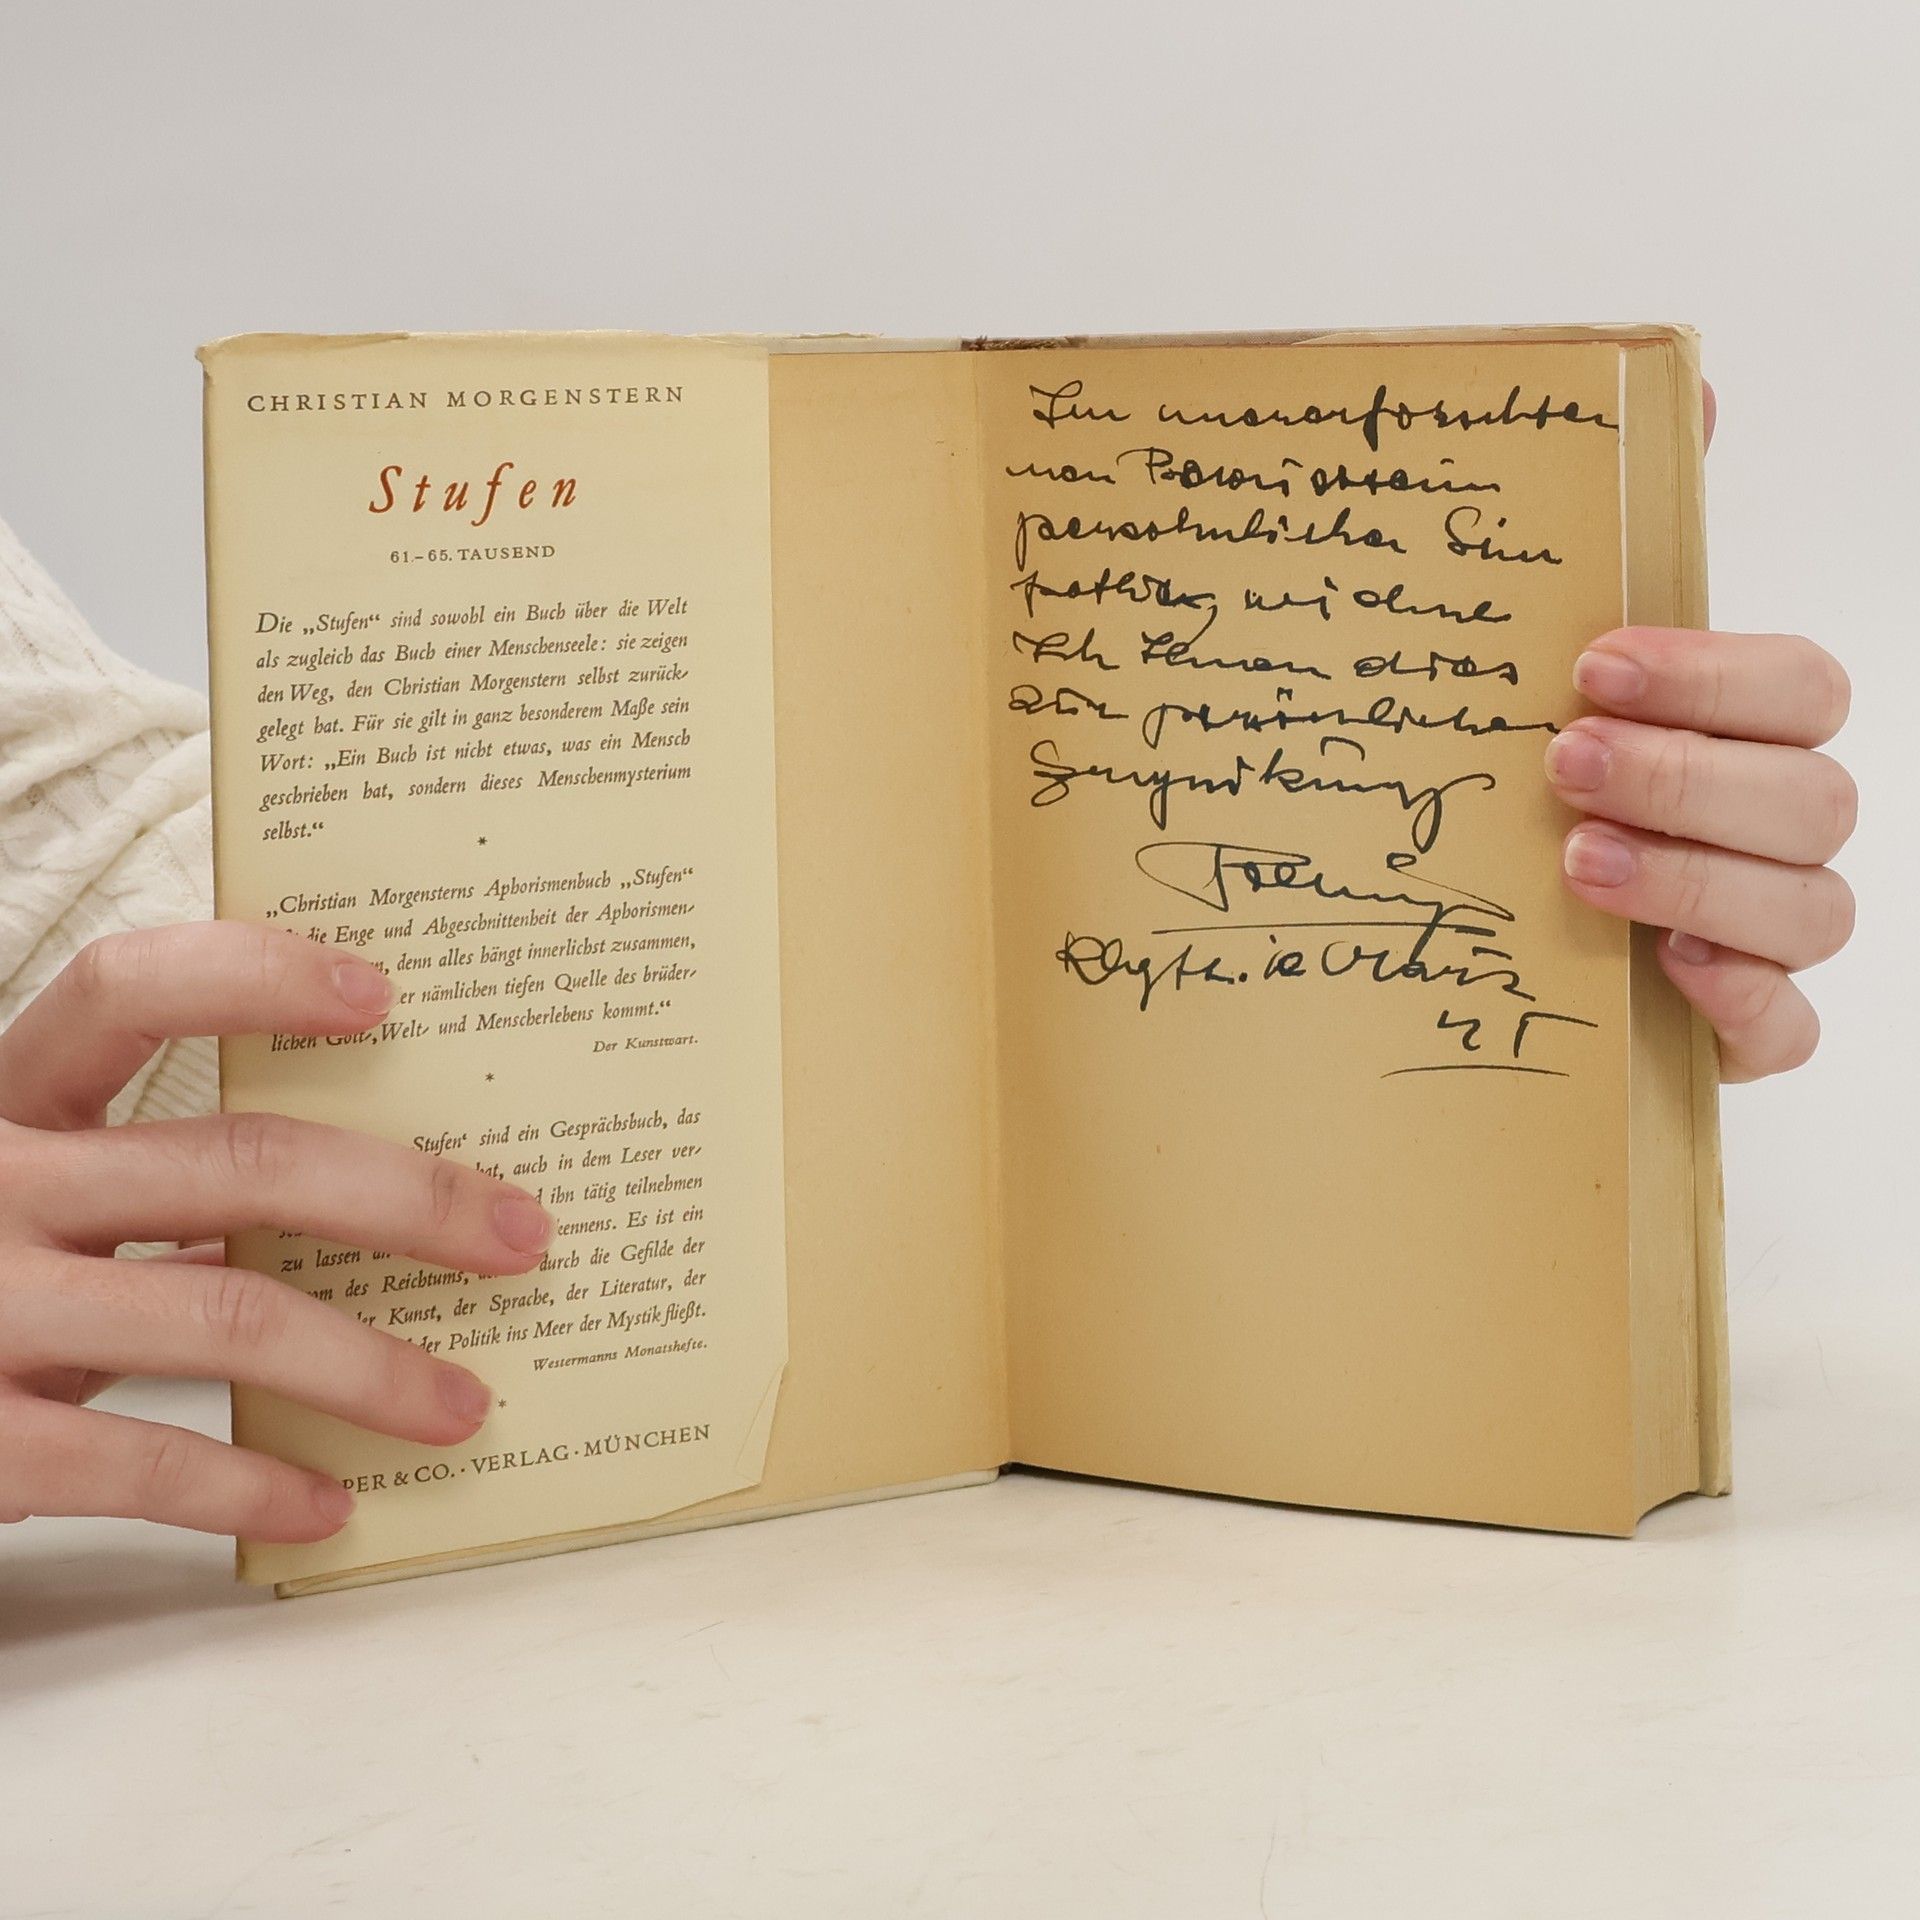 CHRISTIAN MORGENSTERN
Stufen
61.–65. TAUSEND
Die „Stufen“ sind sowohl ein Buch über die Welt
als zugleich das Buch einer Menschenseele: sie zeigen
den Weg, den Christian Morgenstern selbst zurück-
gelegt hat. Für sie gilt in ganz besonderem Maße sein
Wort: „Ein Buch ist nicht etwas, was ein Mensch
geschrieben hat, sondern dieses Menschenmysterium
selbst.“
*
„Christian Morgensterns Aphorismenbuch „Stufen“
die Enge und Abgeschnittenheit der Aphorismen-
denn alles hängt innerlichst zusammen,
nämlichen tiefen Quelle des brüder-
lichen Gott-, Welt- und Menscherlebens kommt.“
Der Kunstwart.
*
Stufen‘ sind ein Gesprächsbuch, das
hat, auch in dem Leser ver-
ihn tätig teilnehmen
Es ist ein
zu lassen
des Reichtums, durch die Gefilde der
der Kunst, der Sprache, der Literatur, der
der Politik ins Meer der Mystik fließt.
Westermanns Monatshefte.
*
& CO. · VERLAG · MÜNCHEN
Im unerforschten
persöhnlicher Sim
pathie, widme
Ich Ihnen dies
zur persönlichen